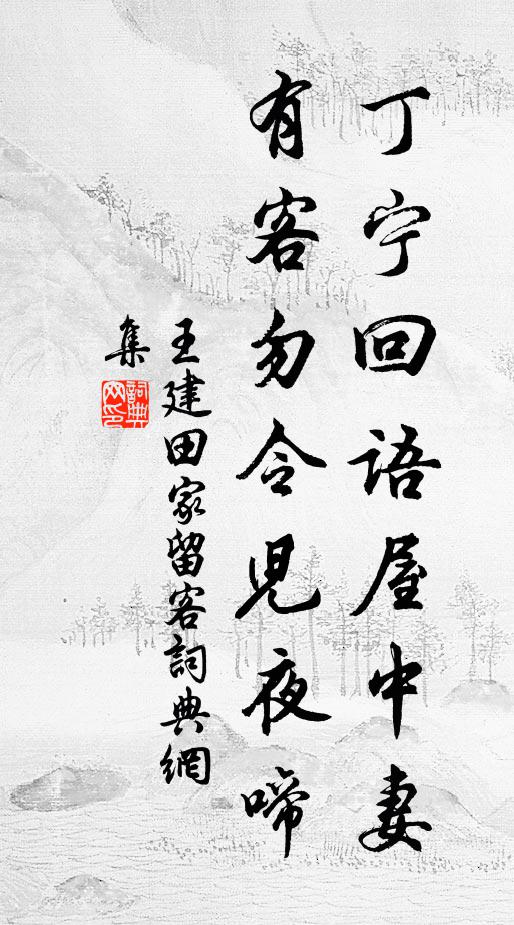 丁宁回語屋中妻
有客勿令児夜啼
王建田家留客詞典網
集
詞典
网印